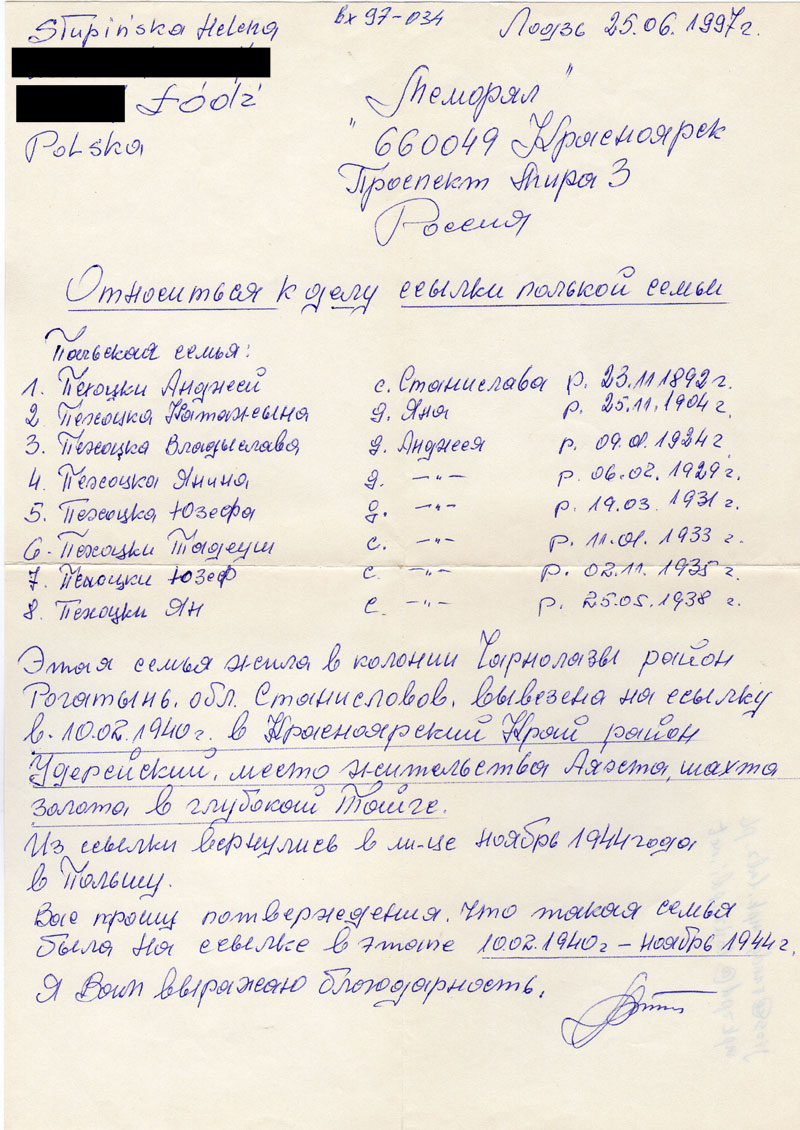 Słupińska Helena
Вх 97-034
Лодзь 25.06.1997г.
Łódź
Polska
"Меморял"
660049 Красноярск
Проспект Мира 3
Россия
Относиться к делу ссылки полькой семьи
Польская семья:
1. Пехоцки Анджей с. Станислава р. 23.11 1892 г.
2. Пехоцка Катажына д. Яна р. 25.11.1904 г.
3. Пехоцка Владыслава д. Анджея р. 1924 г.
4. Пехоцка Янина д. -"- р. 06.02.1929 г.
5. Пехоцка Юзефа д. -"- р. 19.03.1931 г.
6. Пехоцки Тадеуш с. -"- р. 11.01.1933 г.
7. Пехоцки Юзеф с. -"- р. 02.11.1935 г.
8. Пехоцки Ян с. -"- р. 25.05.1938 г.
Этая семья жила в колонии Чарнолазы район
Рогатынь. обл. Станисловов. вывезена на ссылку
в. 10.02.1940 г. в Красноярский Край район
Удерейский. место жительства Аяхта, шахта
золота в глубокой Тайге.
Из ссылки вернулись в м-це ноябрь 1944 года
в Польшу.
Вас прошу потверждения. Что такая семья
была на ссылке в этапе 10.02.1940 г - ноябрь 1944 г.
Я Вам выражаю благодарность.